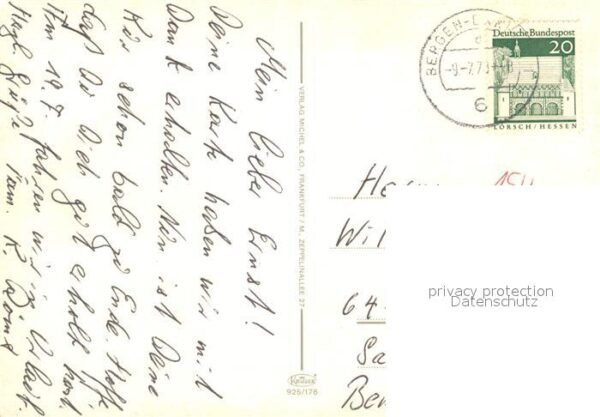 Mein lieber Ernst!
Deine Karte haben wir mit
Dank erhalten. Nun ist Deine
Kur schon bald zu Ende. Hoffe
daß Du Dich gut erholt hast.
Am 19.7. fahren wir in Urlaub.
Herzl. Grüße Fam. K.
VERLAG MICHEL & CO., FRANKFURT / M., ZEPPELINALLEE 27
KRÜGER
925/176
BERGEN-EN
-9.-7.70
6
Deutsche Bundespost
20
LORSCH / HESSEN
154
He
Wil
64
Sa
Ber
privacy protection
Datenschutz